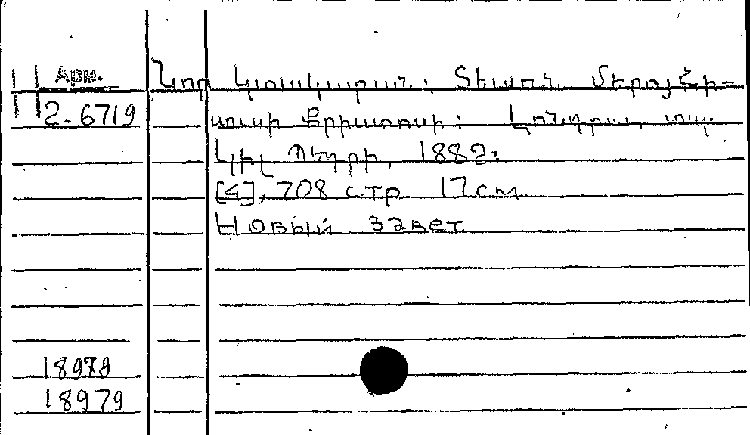 Арм. Նոր Կտակարան։ Տեառն մերոյ Հի-
Ս 2-6719 սուսի Քրիստոսի։ Լոնդրա, տպ.
Կիլ Պետրի, 1882։
[4], 708 стр 17 см
Новый завет
18978
18979